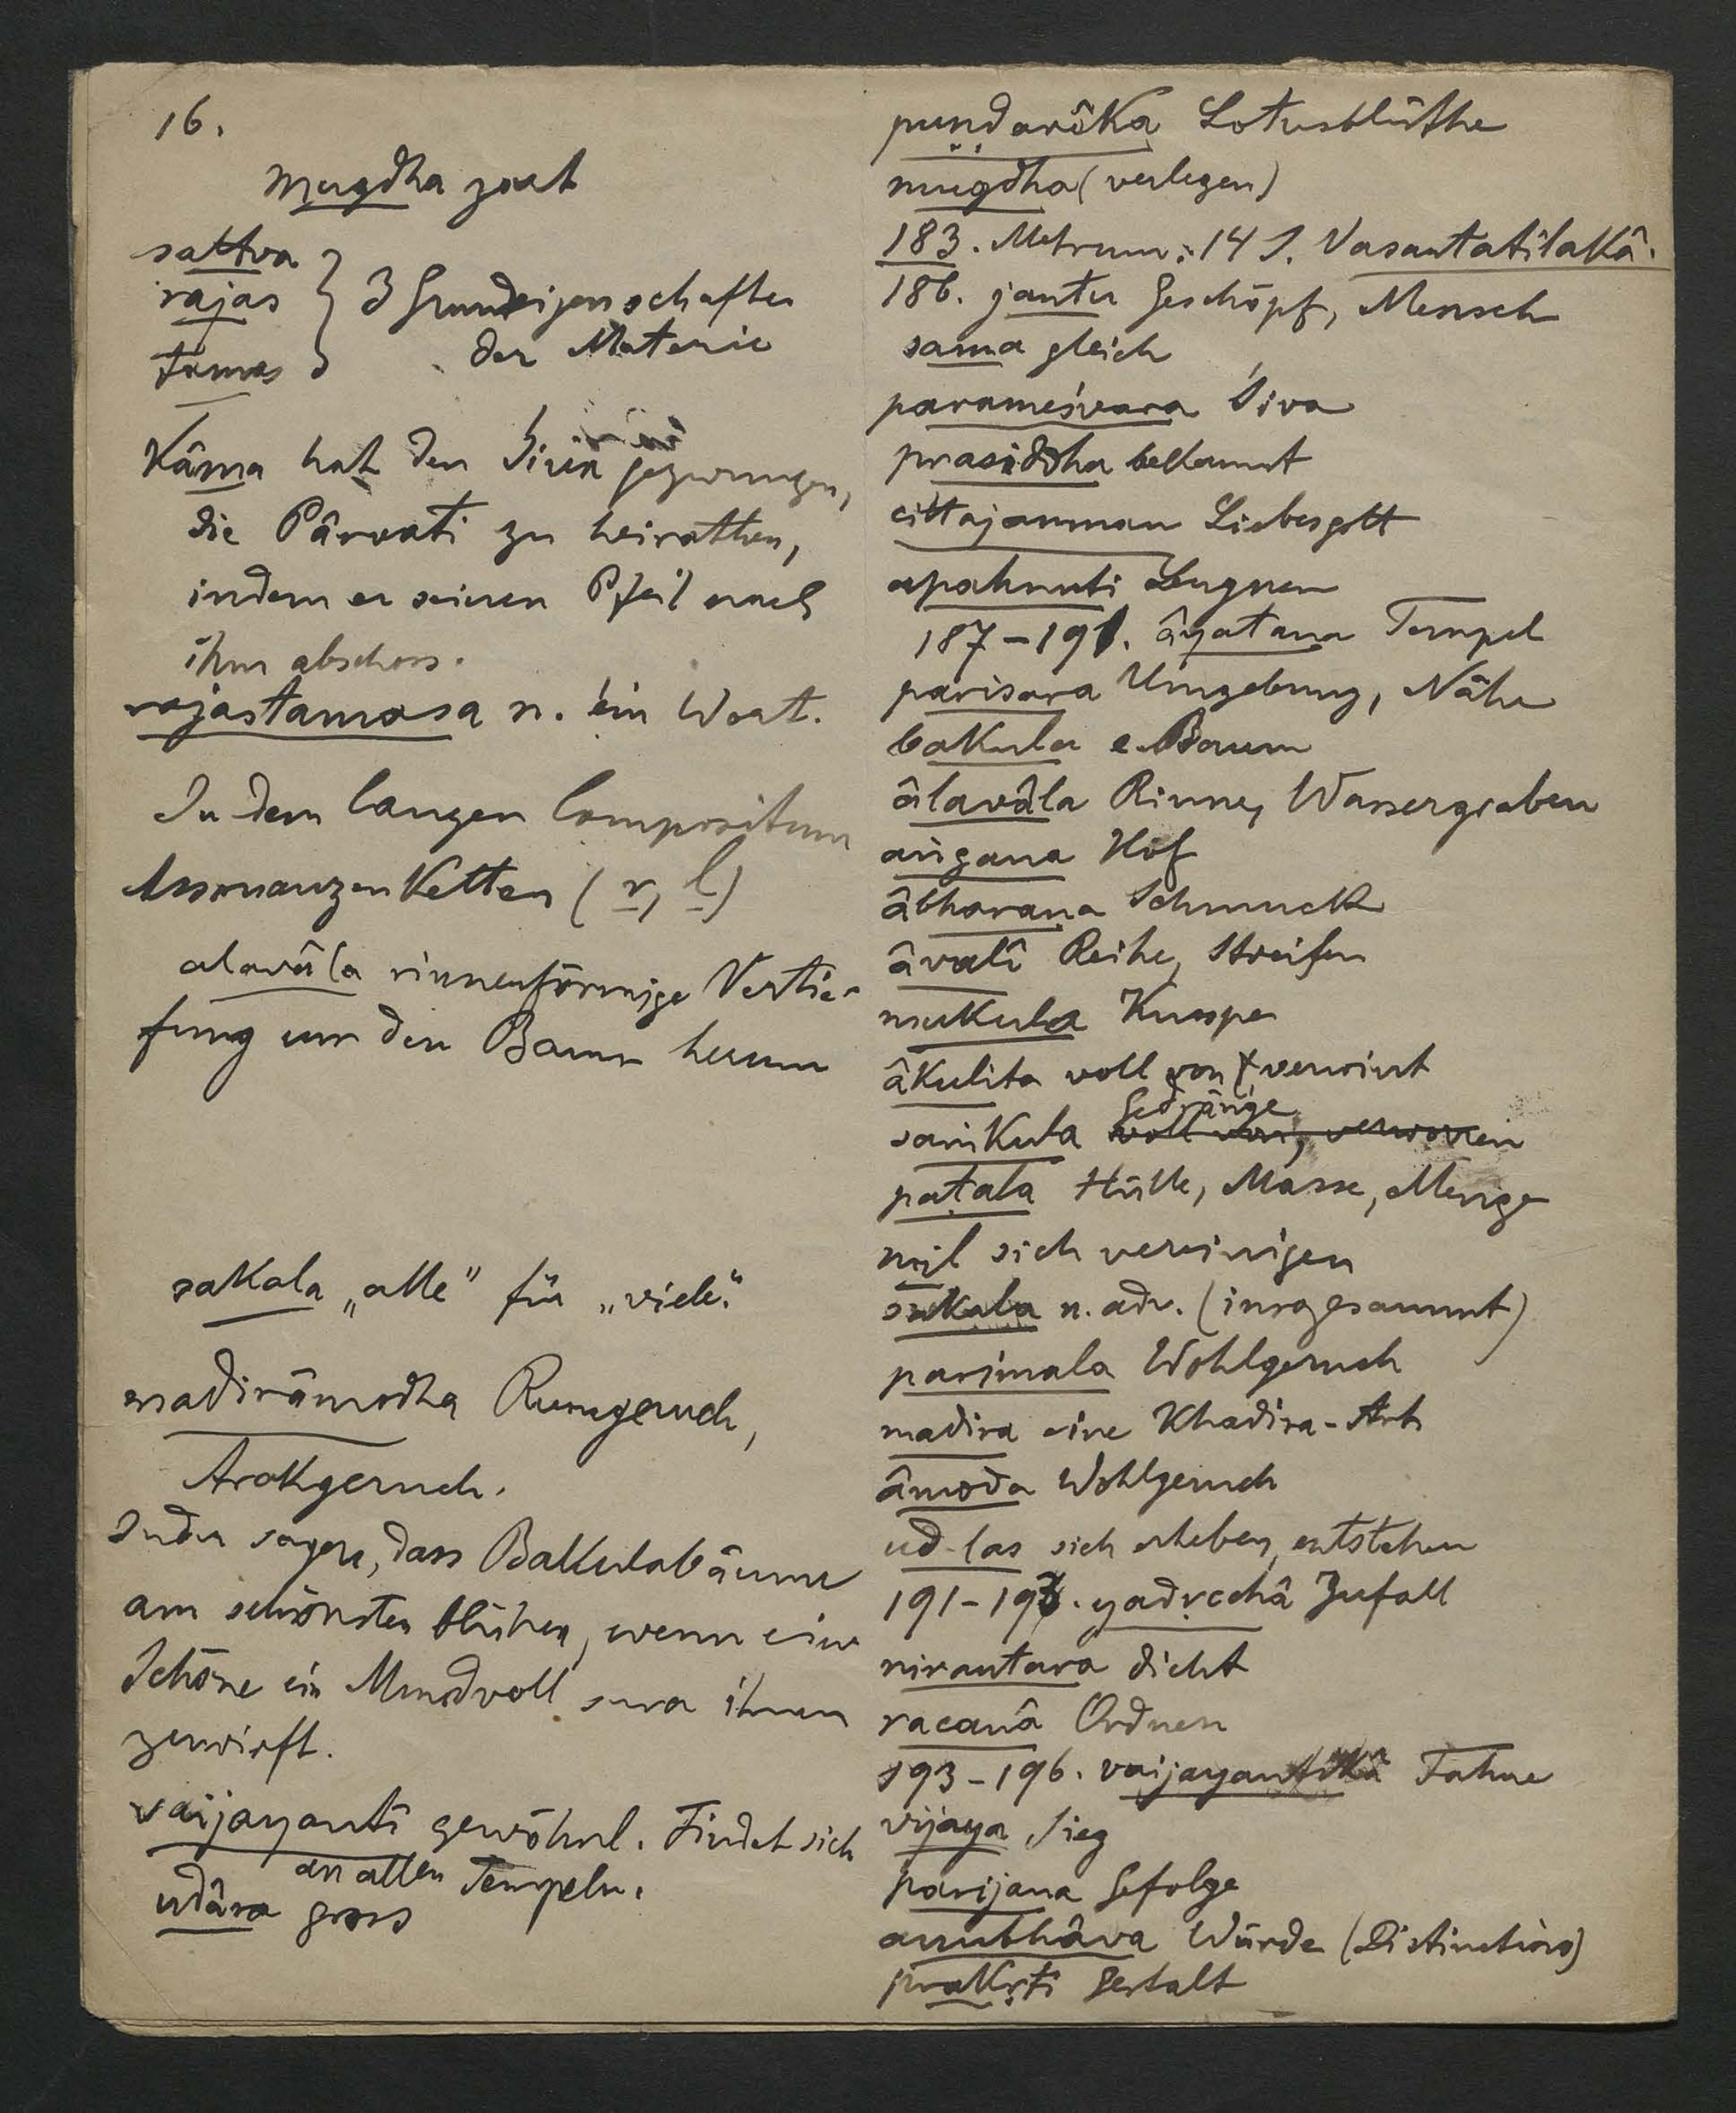 16.
mugdha zart
sattva
rajas } 3 Grundeigenschaften
tamas der Materie
Kâma hat den Śiva gezwungen,
die Pârvatî zu heirathen,
indem er seinen Pfeil nach
ihm abschoss.
rajastamasa n. ein Wort.
In dem langen Compositum
Assonanzenketten (r, l)
alavâla rinnenförmige Vertie-
fung um den Baum herum
sakala „alle" für „viele".
madirâmodha Rumgeruch,
Arakgeruch.
Inder sagen, dass Bakulabäume
am schönsten blühen, wenn eine
Schöne ein Mundvoll sura ihnen
zuwirft.
vaijayantî gewöhnl. Findet sich
an allen Tempeln.
udâra gross
puṇḍarîka Lotusblüthe
mugdha (verlegen)
183. Metrum: 14 S. Vasantatilakâ.
186. jantu Geschöpf, Mensch
sama gleich
parameśvara Śiva
prasiddha bekannt
cittajanman Liebesgott
apahnuti Leugnen
187-191. âyatana Tempel
parisara Umgebung, Nähe
bakula e. Baum
âlavâla Rinne, Wassergraben
aṅgana Hof
âbharaṇa Schmuck
âvalî Reihe, Streifen
mukula Knospe
âkulita voll von, verwirrt
Gedränge
saṁkula voll von, verworren
paṭala Hülle, Masse, Menge
mil sich vereinigen
sakala n. adv. (insgesammt)
parimala Wohlgeruch
madira eine Khadira-Art
âmoda Wohlgeruch
ud-las sich erheben, entstehen
191-193. yadṛcchâ Zufall
nirantara dicht
racanâ Ordnen
193-196. vaijayantikâ Fahne
vijaya Sieg
parijana Gefolge
anubhâva Würde (Distinction)
prakṛti Gestalt